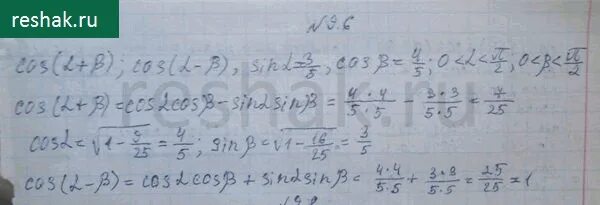 reshak.ru
№9.6
cos(α+β); cos(α-β), sinα=3/5, cosβ=4/5; 0<α<π/2, 0<β<π/2
cos(α+β)=cosαcosβ-sinαsinβ = 4·4/5·5 - 3·3/5·5 = 7/25
cosα=√(1-9/25)=4/5; sinβ=√(1-16/25)=3/5
cos(α-β)=cosαcosβ+sinαsinβ= 4·4/5·5 + 3·3/5·5 = 25/25 = 1